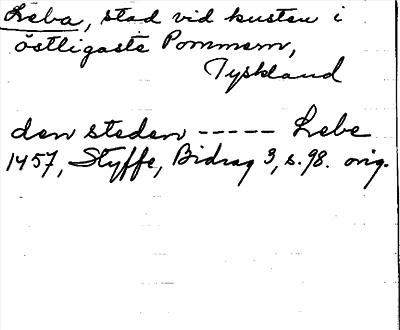 Leba, stad vid kusten i
östligaste Pommern,
Tyskland
den steden ----- Lebe
1457, Styffe, Bidrag 3, s. 98. orig.